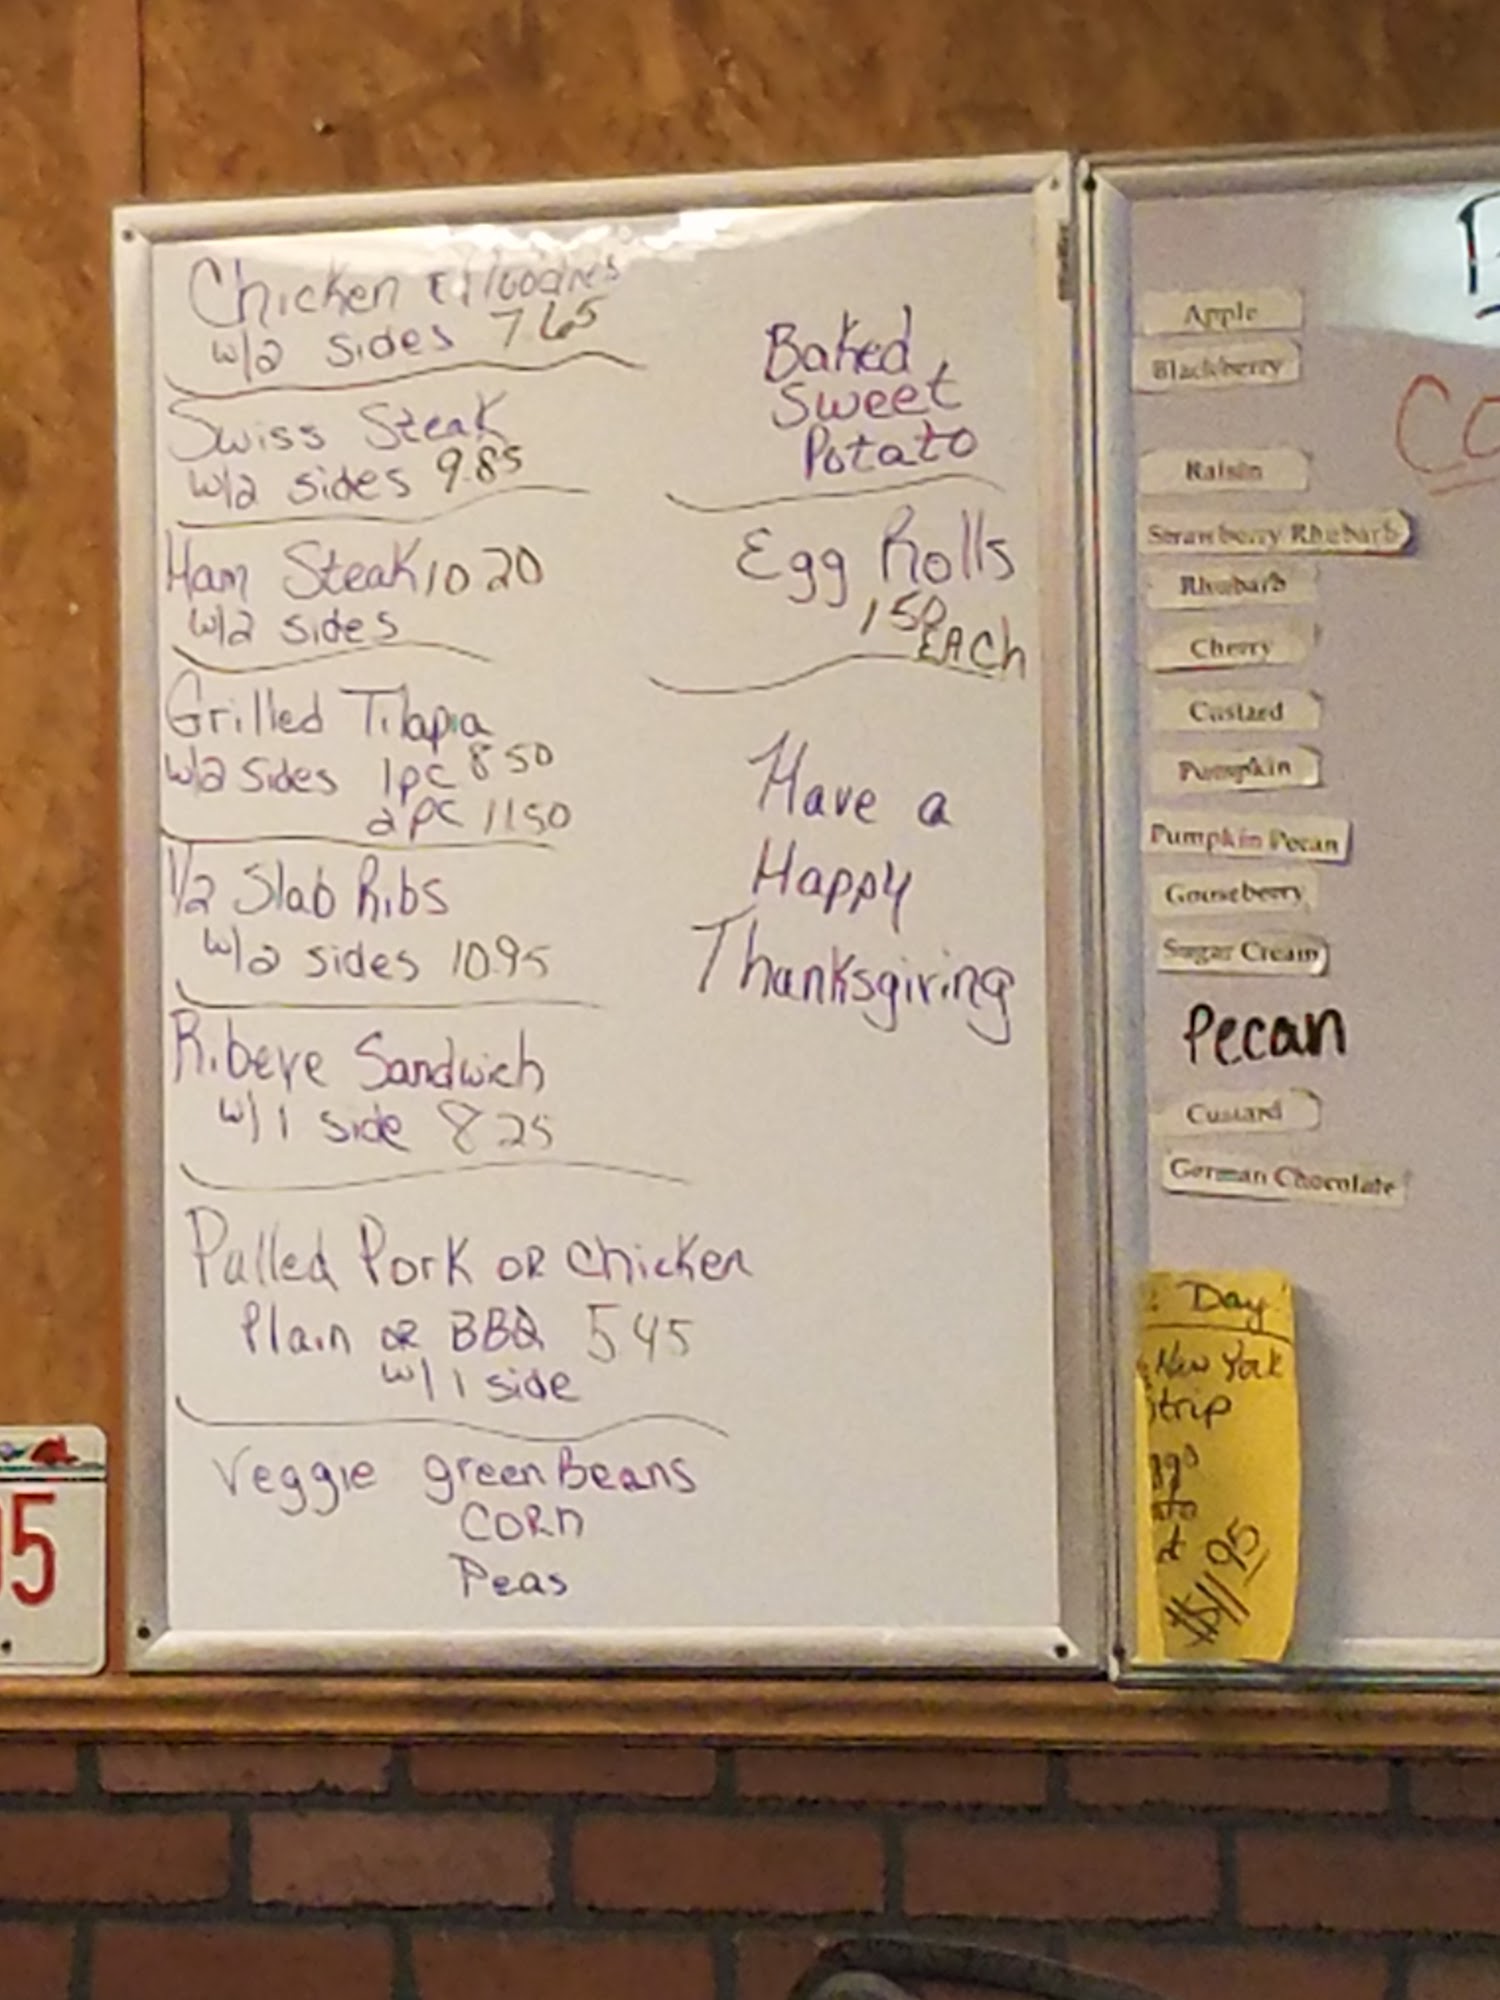 Chicken & Noodles
w/2 sides 765
Swiss Steak
w/2 sides 9.85
Ham Steak 10 20
w/2 sides
Grilled Tilapia
w/2 sides 1pc 850
2pc 1150
1/2 Slab Ribs
w/2 sides 10.95
Ribeye Sandwich
w/1 side 825
Pulled Pork OR Chicken
Plain OR BBQ 545
w/1 side
Veggie green Beans
CORn
Peas
Baked
Sweet
Potato
Egg Rolls
150
EACh
Have a
Happy
Thanksgiving
Apple
Blackberry
Raisin
Strawberry Rhubarb
Rhubarb
Cherry
Custard
Pumpkin
Pumpkin Pecan
Gooseberry
Sugar Cream
Pecan
Custard
German Chocolate
Day
New York
Strip
$11 95
5